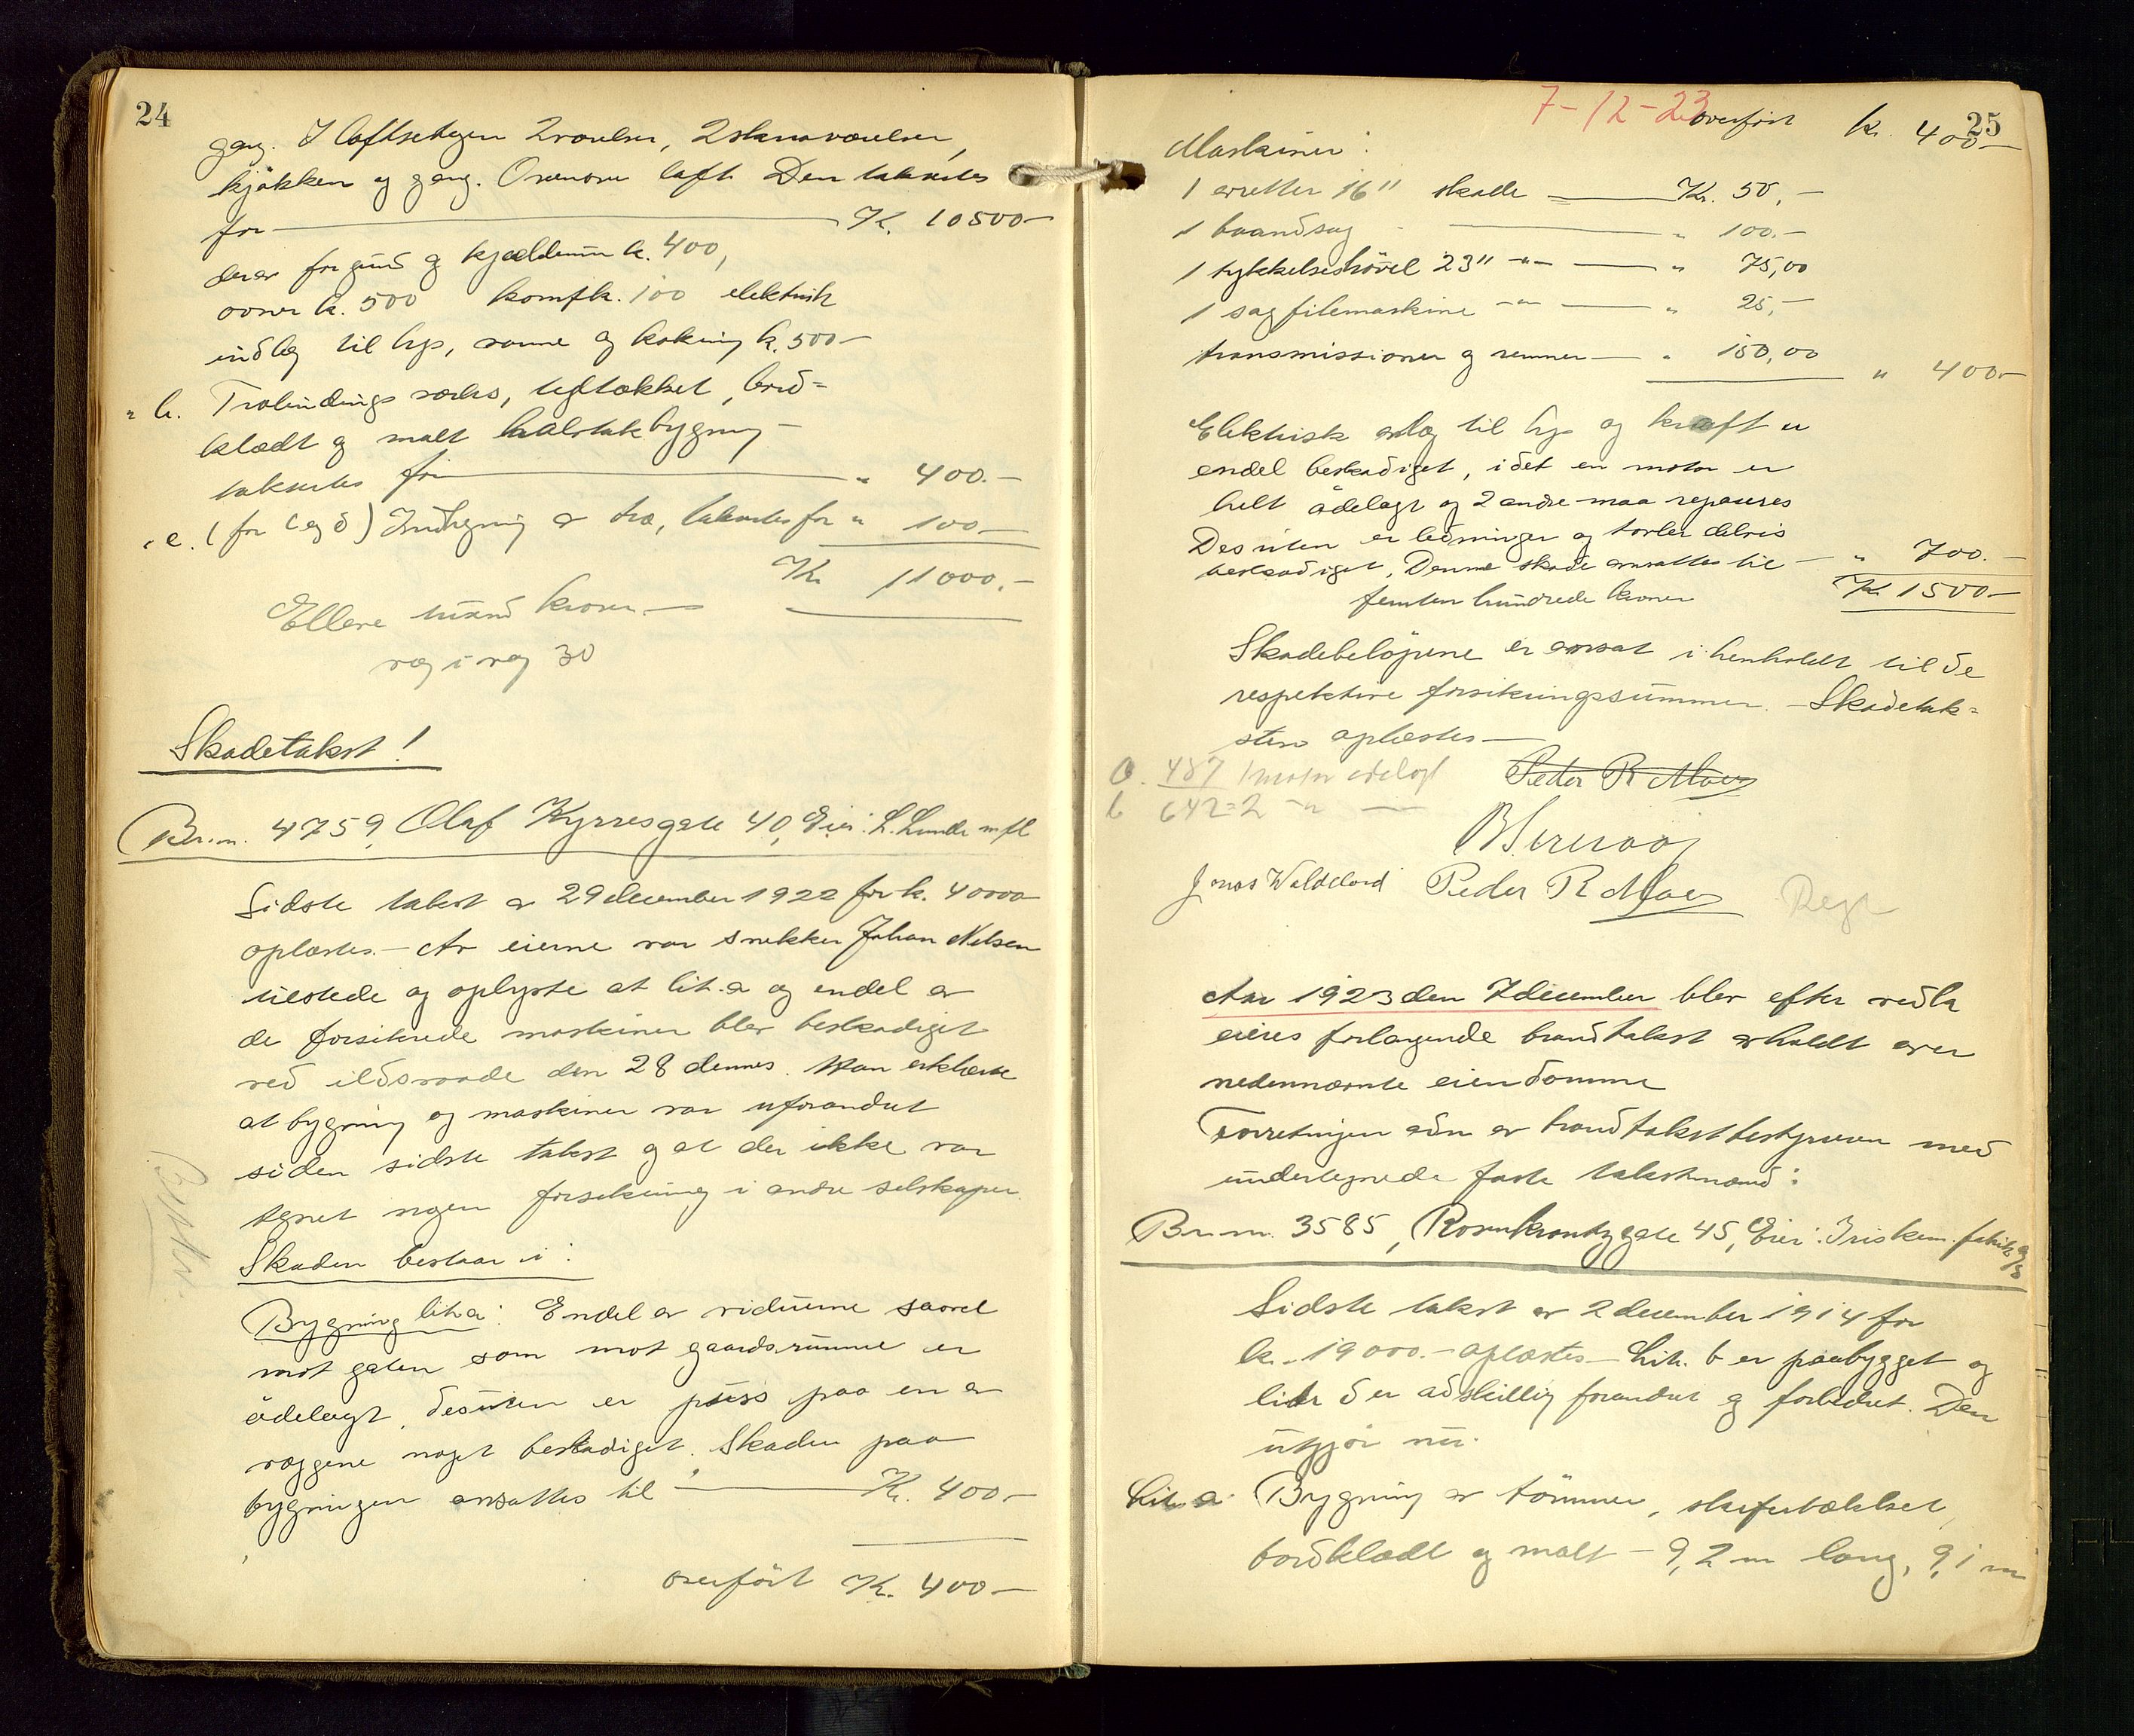 24
gang. I loftsetagen 2 værelser, 2 skraaværelser,
kjøkken og gang. Ovenover loft. Den takseres
for — Kr. 10500—
derav for grund og kjældermur k. 400,
ovner k. 500 komfk. 100 elektrisk
indlæg til lys, varme og kokning k. 500—
" b. Træbindingsverks, tegltækket, bord=
klædt og malt halvtaksbygning—
takseres for — " 400.—
" c. (for c og d) Indhegning av træ, takseres for " 100—
Kr. 11000.—
Elleve tusind kroner—
væg i væg 30
Skadetakst!
Br.nr. 4759, Olaf Kyrresgate 40, Eier: L. Lunde m.fl
Sidste takst av 29 december 1922 for k. 40000
oplæstes.— Av eierne var snekker Johan Nilsen
tilstede og oplyste at lit.a og endel av
de forsikrede maskiner blev beskadiget
ved ildsvaade den 28 dennes. Han erklærte
at bygning og maskiner var uforandret
siden sidste takst og at der ikke var
tegnet nogen forsikring i andre selskaper.
Skaden bestaar i:
Bygning lit.a: Endel av viduerne saavel
mot gaten som mot gaardsrummet er
ødelagt, desuten er puss paa en av
væggene noget beskadiget. Skaden paa
bygningen ansættes til — Kr. 400—
overført Kr. 400—
7-12-23
25
overført kr. 400—
Maskiner:
1 avretter 16" skade — Kr. 50,—
1 baandsag — " 100.—
1 tykkelseshøvel 23" -"- — " 75,00
1 sagfilemaskine -"- — " 25,—
transmissioner og remmer — " 150,00
" 400—
Elektrisk anlæg til lys og kraft er
endel beskadiget, idet en motor er
helt ødelagt og 2 andre maa repareres
Desuten er ledninger og tavler delvis
beskadiget. Denne skade ansættes til — " 700.—
femten hundrede kroner Kr. 1500—
Skadebeløpene er ansat i henholdt til de
respektive forsikringssummer.— Skadetak=
sten oplæstes—
a. 487 1 motor ødelagt Peder R Moen
b 642=2 -"- —
Jonas Waldeland Peder R Moen Regn
Aar 1923 den 7 december blev efter vedk.
eieres forlangende brandtakst avholdt over
nedennævnte eiendomme
Forretningen adm. av brandtakstbestyreren med
undertegnede faste takstmænd:
Br.nr. 3585, Rosenkrantzgate 45, Eier: Iris kem. fabrik a/s
Sidste takst av 2 december 1914 for
k. 19000.— oplæstes— Lit. b er paabygget og
litr d er adskillig forandret og forbedret. Den
utgjør nu.
Lit. a. Bygning av tømmer, skifertækket,
bordklædt og malt— 9,2 m lang, 9,1 m